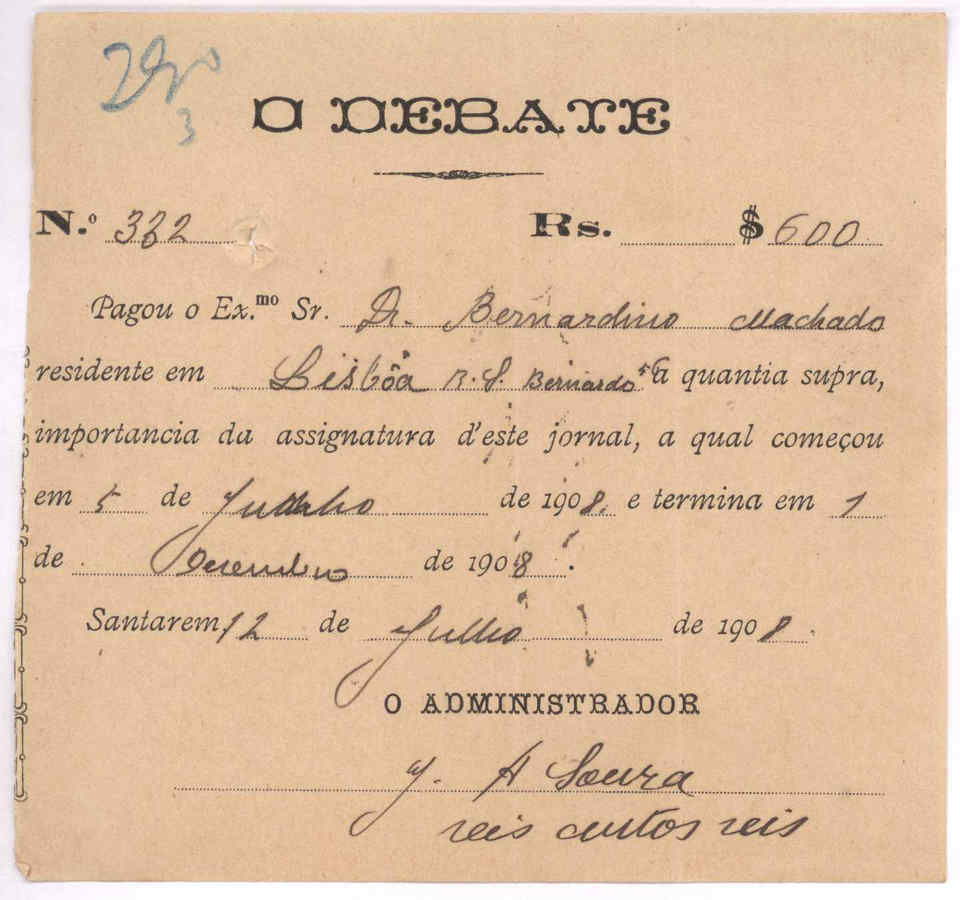 3
O DEBATE
N.º 332 Rs. $600
Pagou o Ex.mo Sr. Dr. Bernardino Machado
residente em Lisbôa R. S. Bernardo 56 a quantia supra,
importancia da assignatura d'este jornal, a qual começou
em 5 de de 1908. e termina em 1
de Dezembro de 1908.
Santarem, 12 de Julho de 1908.
O ADMINISTRADOR
J. A Souza
reis centos reis